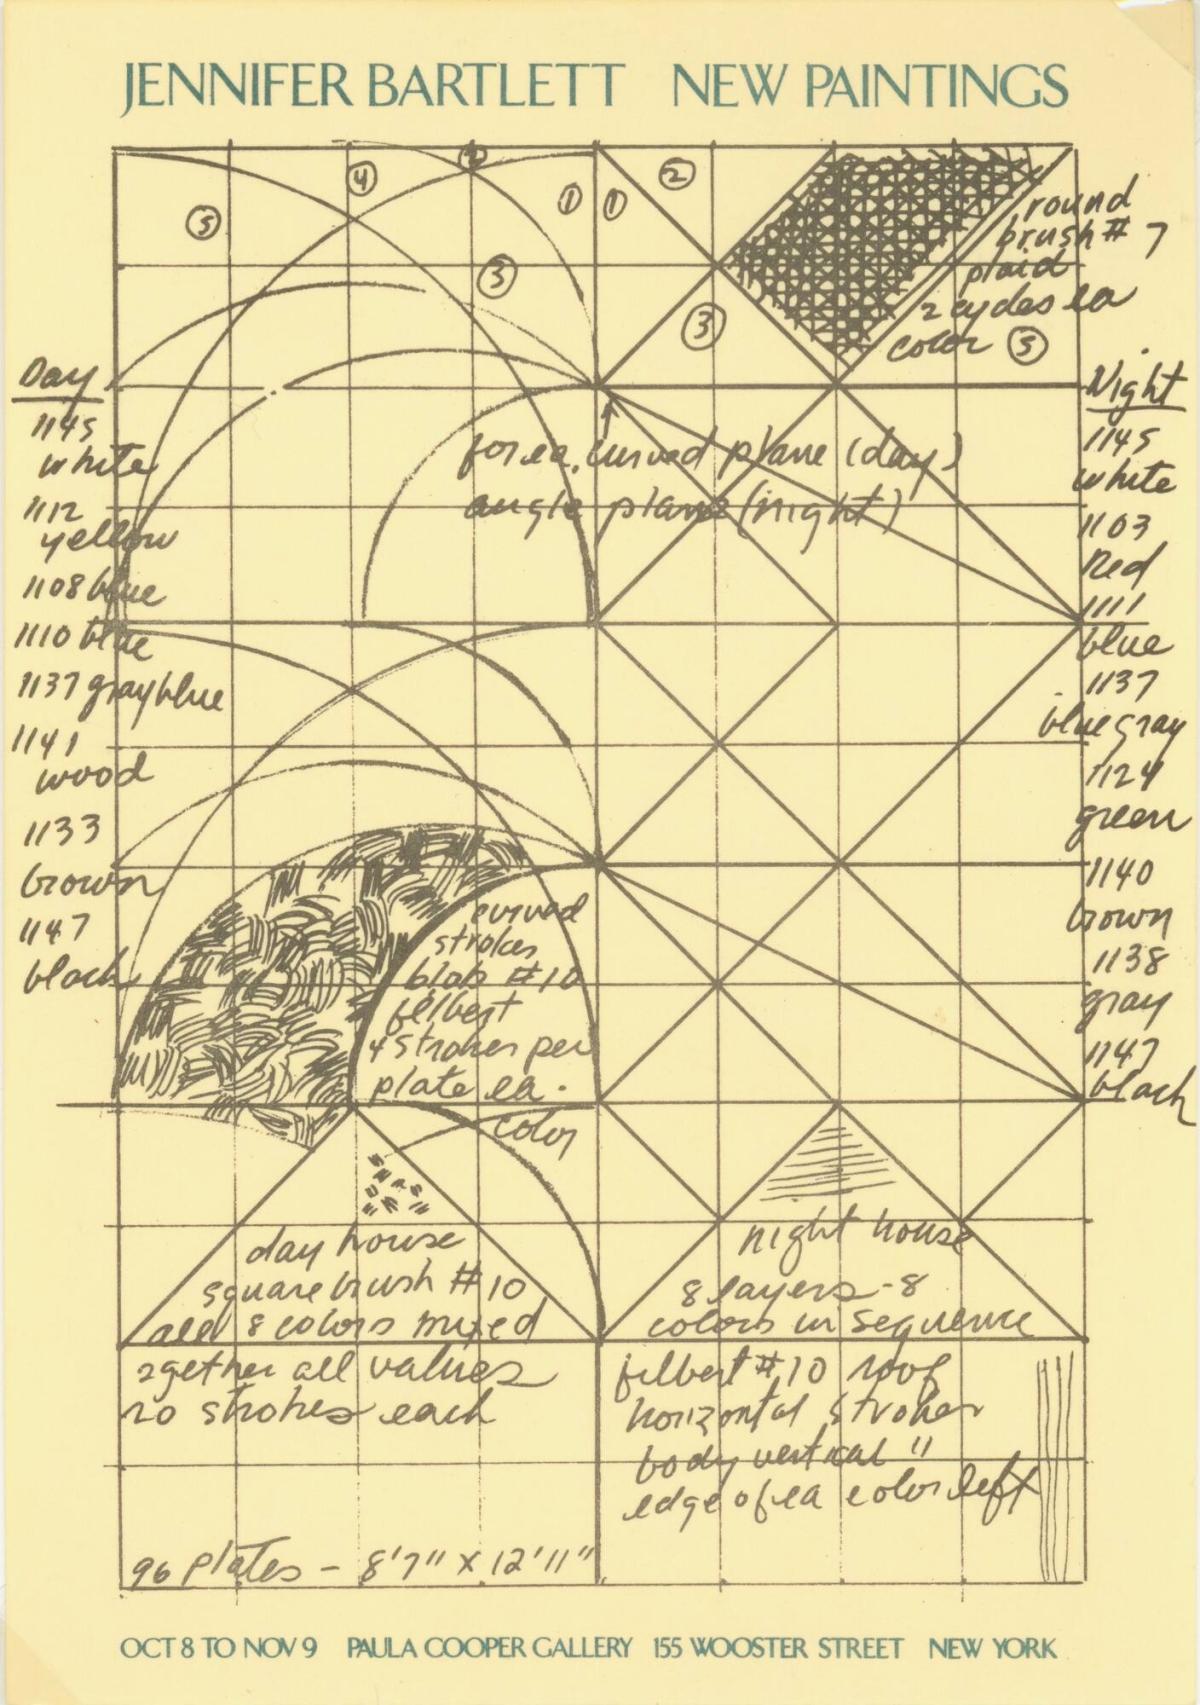 JENNIFER BARTLETT NEW PAINTINGS
5
4
2
1
1
2
3
3
round
brush # 7
plaid
2 cycles ea
color 5
Day
1145
white
1112
yellow
1108 blue
1110 blue
1137 grayblue
1141
wood
1133
brown
1147
black
for ea. curved plane (day)
angle plane (night)
Night
1145
white
1103
Red
1111
blue
1137
blue gray
1124
green
1140
brown
1138
gray
1147
black
curved
strokes
blob #10
filbert
4 strokes per
plate ea.
color
day house
square brush #10
all 8 colors mixed
2gether all values
20 strokes each
night house
8 layers - 8
colors in sequence
filbert #10 roof
horizontal strokes
body vertical "
edge of ea color left
96 plates - 8'7" x 12'11"
OCT 8 TO NOV 9 PAULA COOPER GALLERY 155 WOOSTER STREET NEW YORK